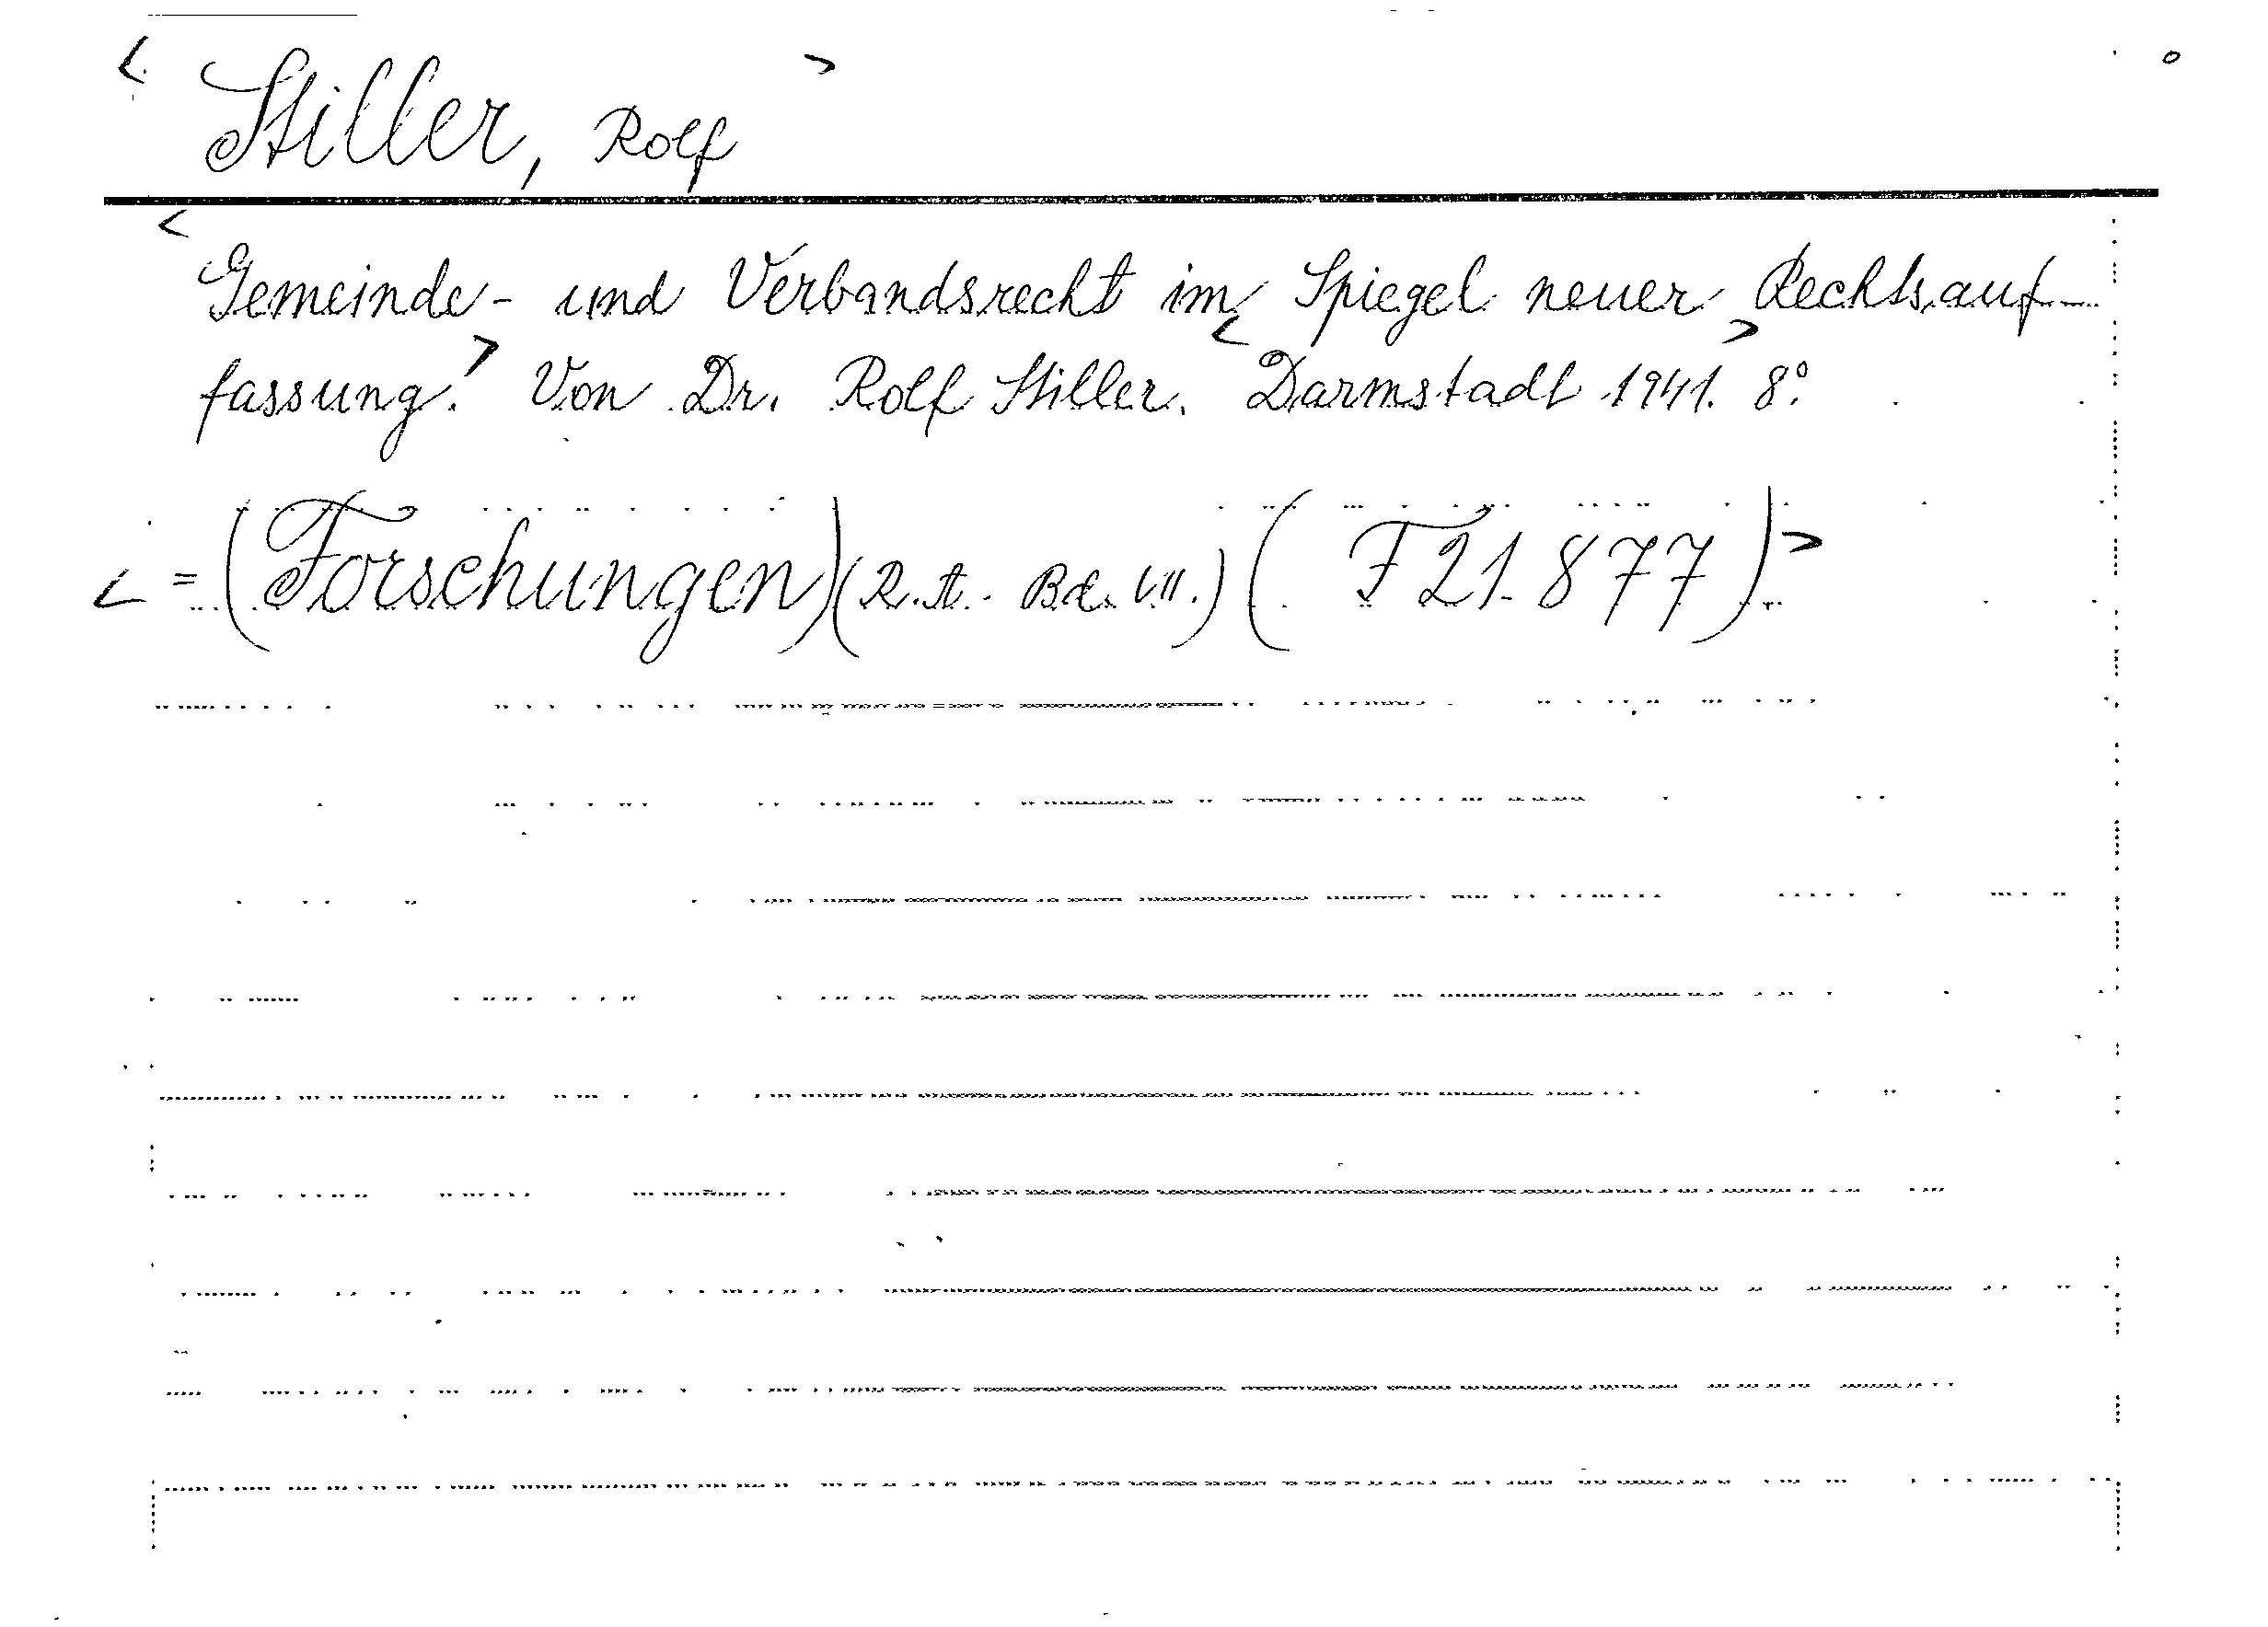 < Stiller, Rolf >
< Gemeinde- und Verbandsrecht im Spiegel neuer Rechtsauf-
fassung.> Von Dr. Rolf Stiller. <Darmstadt 1941.> 8°.
< = (Forschungen) (R. A. Bd. VII.) ( F 21.877) >